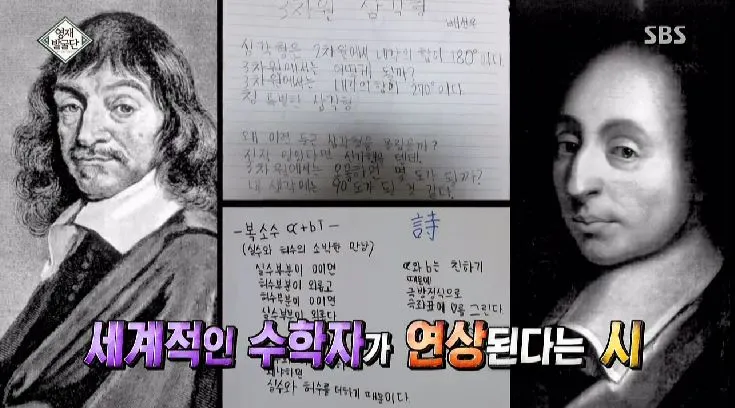 영재
발굴단
SBS
3차원 삼각형
배선우
삼각형은 2차원에서 내각의 합이 180°이다.
3차원에서는 어떻게 될까?
3차원에서는 내각의 합이 270°이다.
참 특별한 삼각형
왜 이런 둥근 삼각형을 몰랐을까?
진작 알았다면
3차원에서는 몇 도가 될까?
내 생각에는 90°도가 될 것 같다.
-복소수 a+bi-
詩
(실수와 허수의 소박한 만남)
실수부분이 0이면
허수부분이 외롭고
허수부분이 0이면
실수부분이 외롭다
a와 b는 친하기
때문에
극방정식으로
극좌표에 를 그린다
세계적인 수학자가 연상된다는 시
왜냐하면
실수와 허수를 더하기 때문이다.